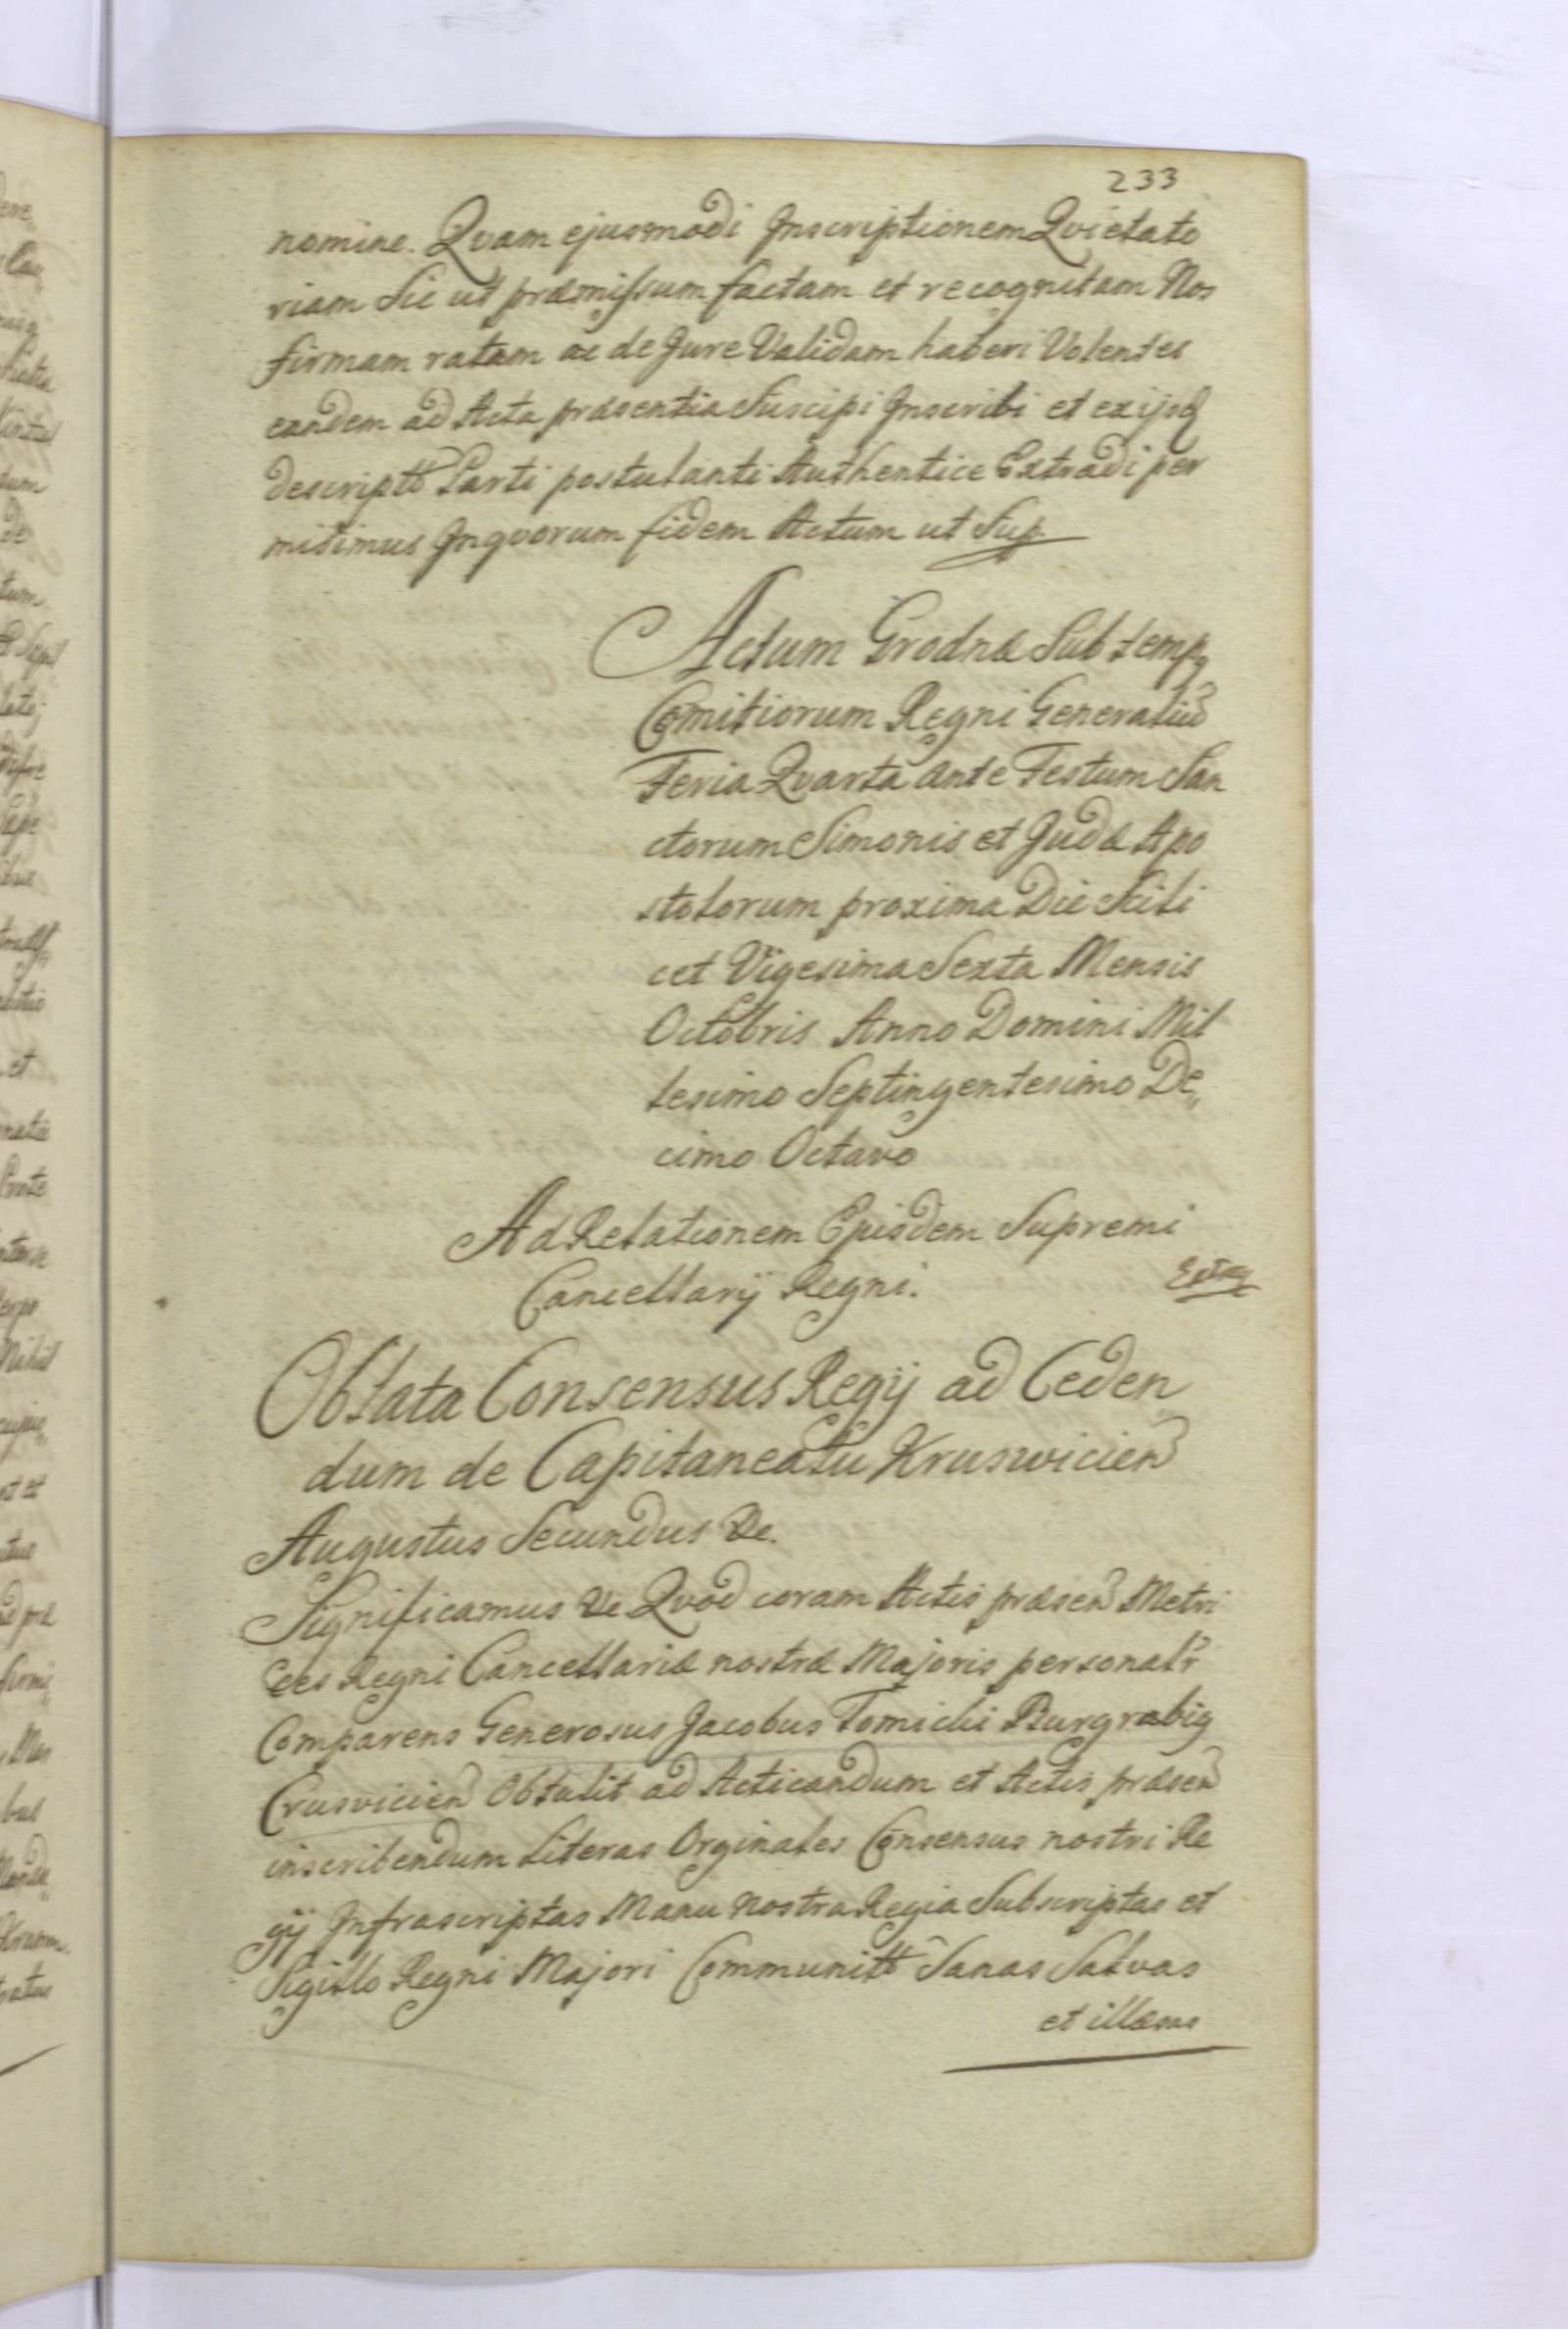 233
nomine. Qvam ejusmodi Inscriptionem Qvietato
riam Sic ut præmissum factam et recognitam Nos
firmam ratam ac de Jure Validam haberi Volentes
eandem ad Acta præsentia Suscipi Inscribi et ex ijsq
descriptt Parti postulanti Authentice Extradi per
misimus Inqvorum fidem Actum ut Sup
Actum Grodnæ Sub temp
Comitiorum Regni Generaliu
Feria Qvarta ante Festum San
ctorum Simonis et Judæ Apo
stolorum proxima Die Scili
cet Vigesima Sexta Mensis
Octobris Anno Domini Mil
lesimo Septingentesimo De„
cimo Octavo
Ad Relationem Ejusdem Supremi
Cancellarij Regni.
Oblata Consensus Regij ad Ceden„
dum de Capitaneatu Kruswicien
Augustus Secundus &c.
Significamus &c Qvod coram Actis præsen Metri
ces Regni Cancellariæ nostræ Majoris personalr
Comparens Generosus Jacobus Tomicki Burgrabig
Crusvicien Obtulit ad Acticandum et Actis præsen
inscribendum Literas Orginales Consensus nostri Re
gij Infrascriptas Manu nostra Regia Subscriptas et
Sigillo Regni Majori Communitt Sanas Salvas
et illæsas